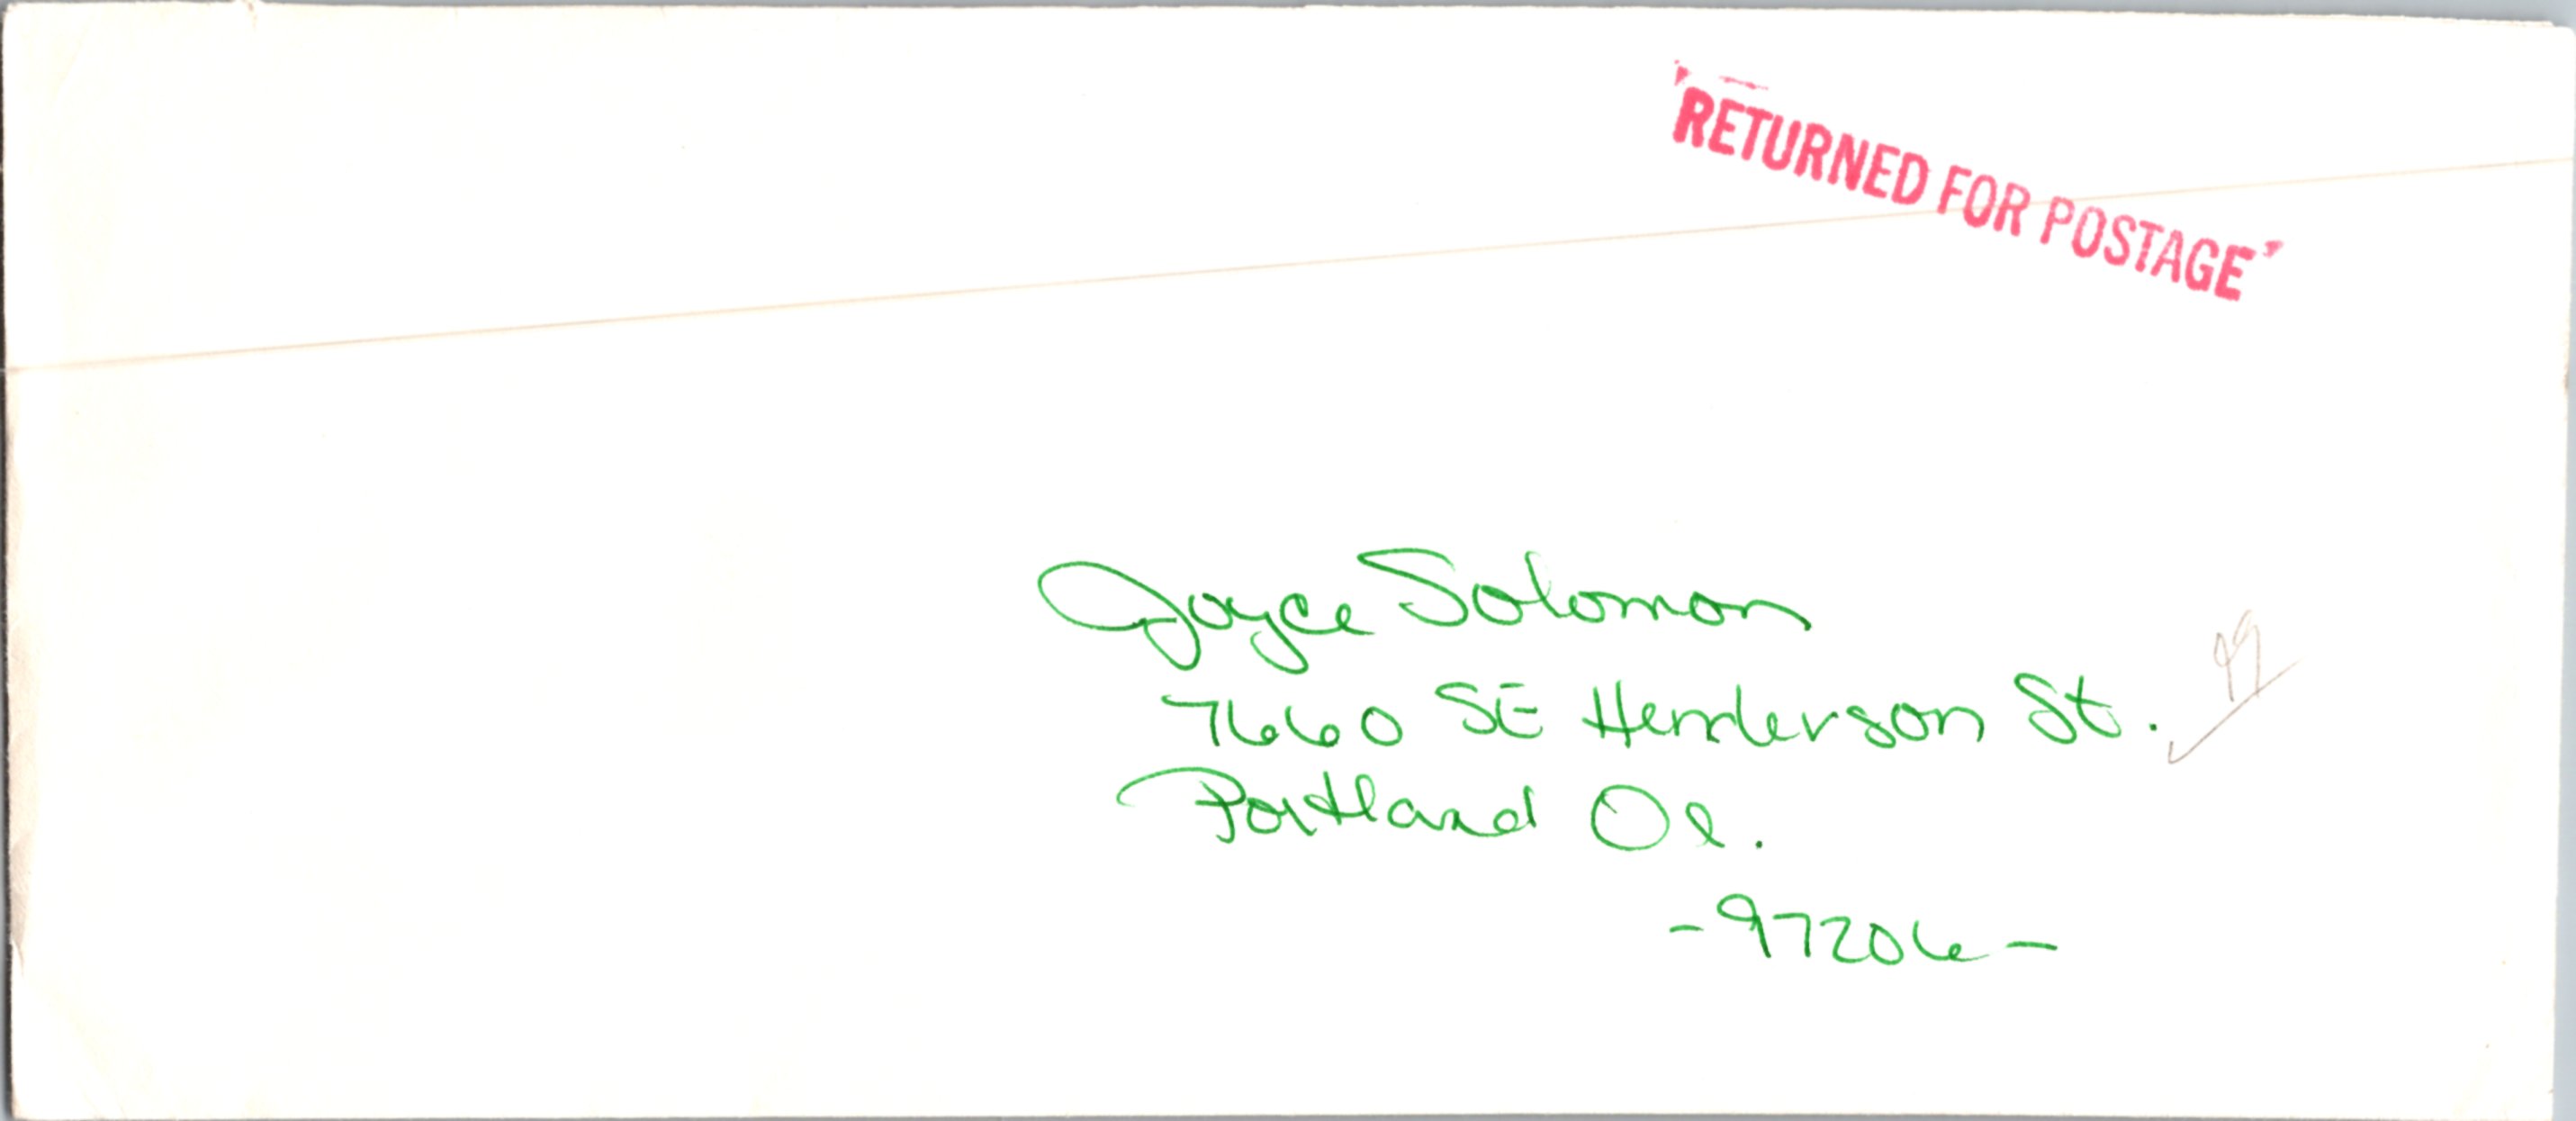 RETURNED FOR POSTAGE
Joyce Solomon
7660 SE Henderson St.
Portland Or.
-97206-